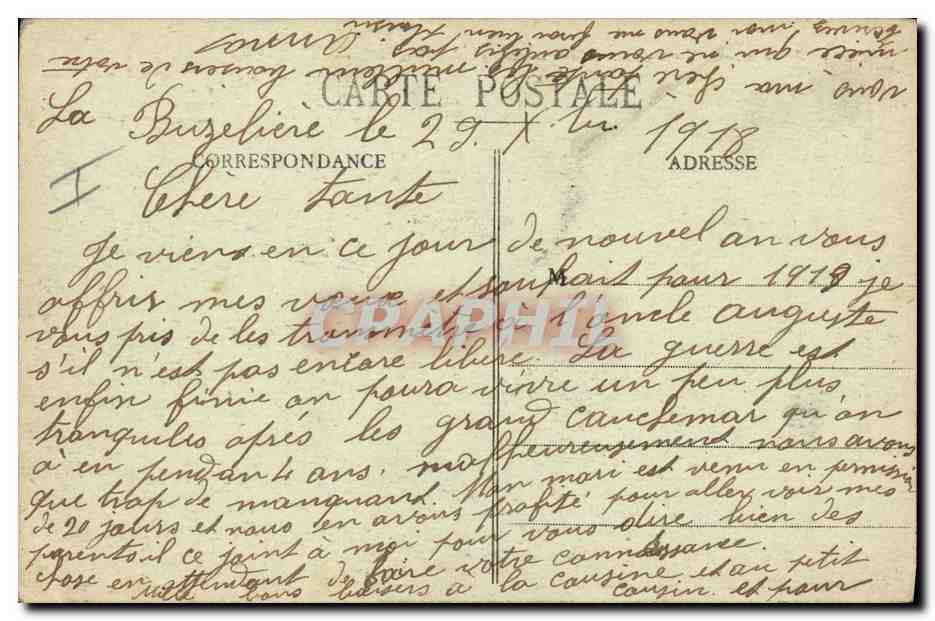 CARTE POSTALE
La Buzelière le 29. X bre 1918
CORRESPONDANCE
ADRESSE
M
I
Chère tante
Je viens en ce jour de nouvel an vous
offrir mes vœux et souhait pour 1919 je
vous pris de les transmetre a l'oncle auguste
s'il n'est pas encore libéré. La guerre est
enfin finie on poura vivre un peu plus
tranquiles après les grand cauchemar qu'on
à en pendan 4 ans. malheureusement nous avons
que trop de manquant. Mon mari est venu en permission
de 20 jours et nous en avons profité pour aller voir mes
parents il ce joint à moi pour vous dire bien des
chose en attendant de faire votre connaissance.
Mille bons baisers à la cousine et au petit
cousin et pour
vous ma chère tante les meilleur baisers de votre
nièce qui ne vous oublis pas
Anna
écrivez moi vous me ferai bien
plaisir
CPAPHIL